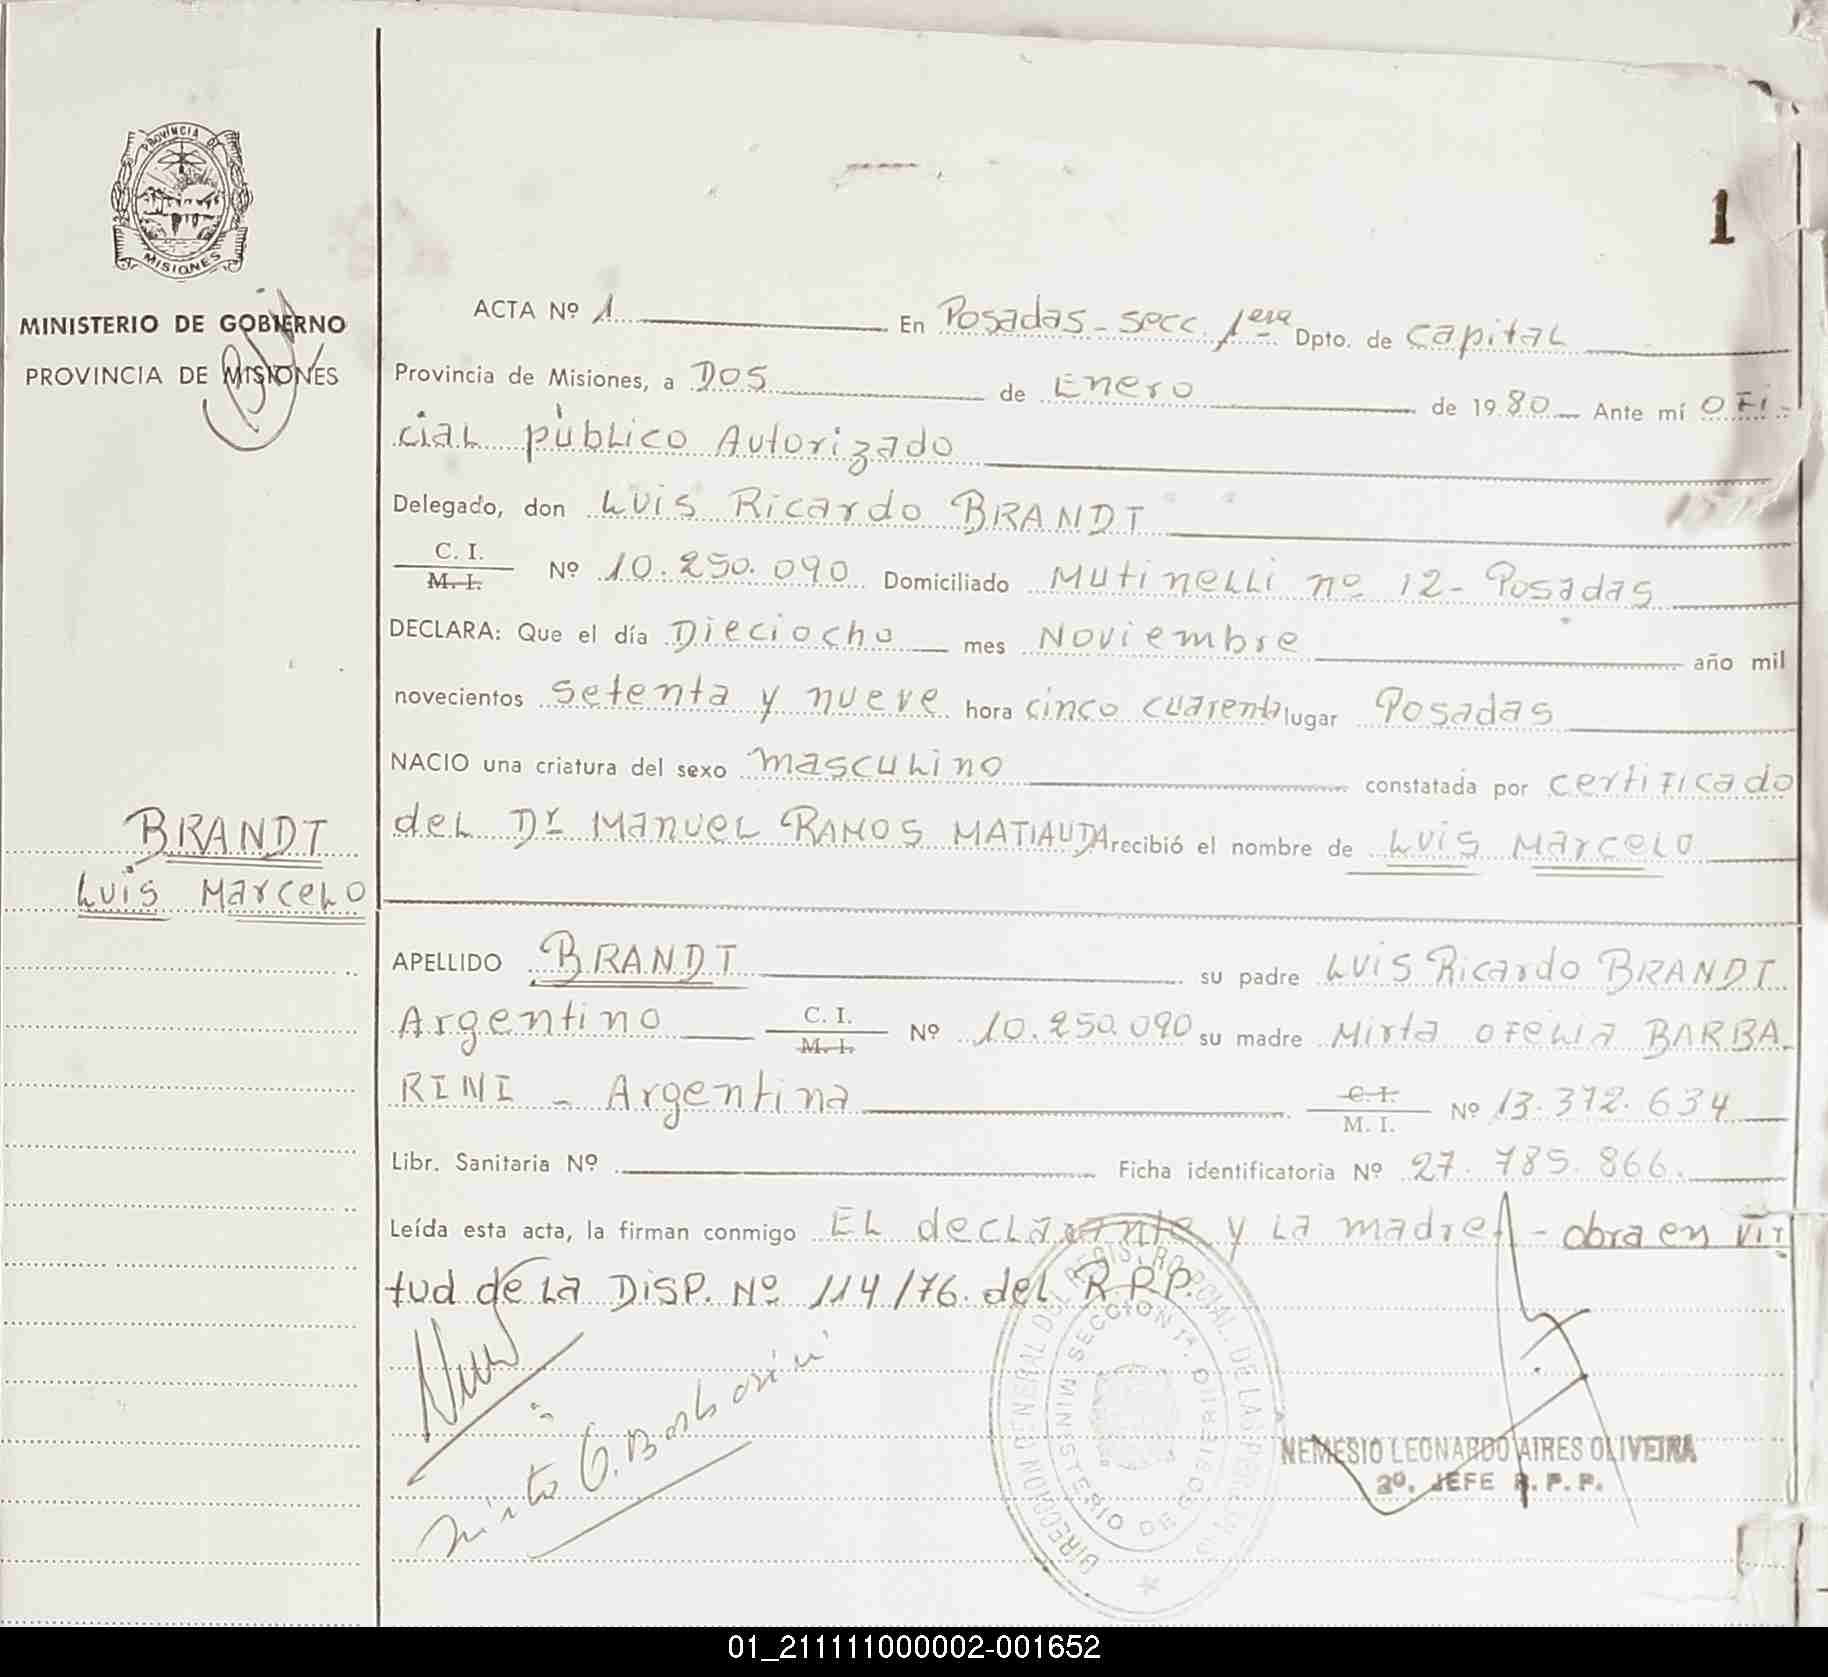 PROVINCIA DE
MISIONES
MINISTERIO DE GOBIERNO
PROVINCIA DE MISIONES
1
ACTA Nº 1 En Posadas - secc. 1era Dpto. de capital
Provincia de Misiones, a Dos de Enero de 1980 Ante mí ofi-
cial público Autorizado
Delegado, don Luis Ricardo BRANDT
C. I.
M. I.
Nº 10.250.090 Domiciliado Mutinelli nº 12 - Posadas
DECLARA: Que el día Dieciocho mes Noviembre año mil
novecientos setenta y nueve hora cinco cuarenta lugar Posadas
NACIO una criatura del sexo masculino constatada por certificado
del Dr Manuel RAMOS MATIAUDA recibió el nombre de Luis Marcelo
BRANDT
Luis Marcelo
APELLIDO BRANDT su padre Luis Ricardo BRANDT
Argentino C. I. M. I. Nº 10.250.090 su madre Mirta Ofelia BARBA-
RINI - Argentina C. I. M. I. Nº 13.372.634
Libr. Sanitaria Nº Ficha identificatoria Nº 27.785.866.
Leída esta acta, la firman conmigo El declarante y la madre - obra en vir
tud de la DISP. Nº 114/76. del R.P.P.
Mirta O. Barbarini
DIRECCION GENERAL DEL REGISTRO PCIAL. DE LAS PERSONAS
MINISTERIO DE GOBIERNO SECCION 1ª.
NEMESIO LEONARDO AIRES OLIVEIRA
2º. JEFE R. P. P.
01_211111000002-001652